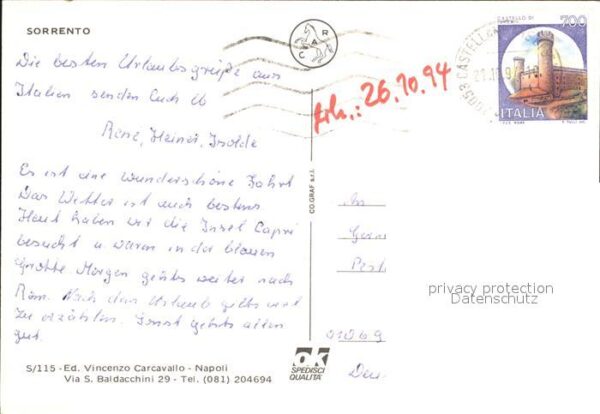 SORRENTO
Die besten Urlaubsgrüße aus
Italien senden Euch
Rene, Heiner, Isolde
Es ist eine wunderschöne Fahrt
Das Wetter ist auch bestens
Heut haben wir die Insel Capri
besucht u. waren in der blauen
Grotte Morgen gehts weiter nach
Rom. Nach dem Urlaub gibts viel
zu erzählen. Sonst gehts allen
gut.
S/115 - Ed. Vincenzo Carcavallo - Napoli
Via S. Baldacchini 29 - Tel. (081) 204694
CAR
CO.GRAF s.r.l.
ok
SPEDISCI
QUALITÀ
erh.: 26.10.94
CASTELLO DI
700
ITALIA
privacy protection
Datenschutz